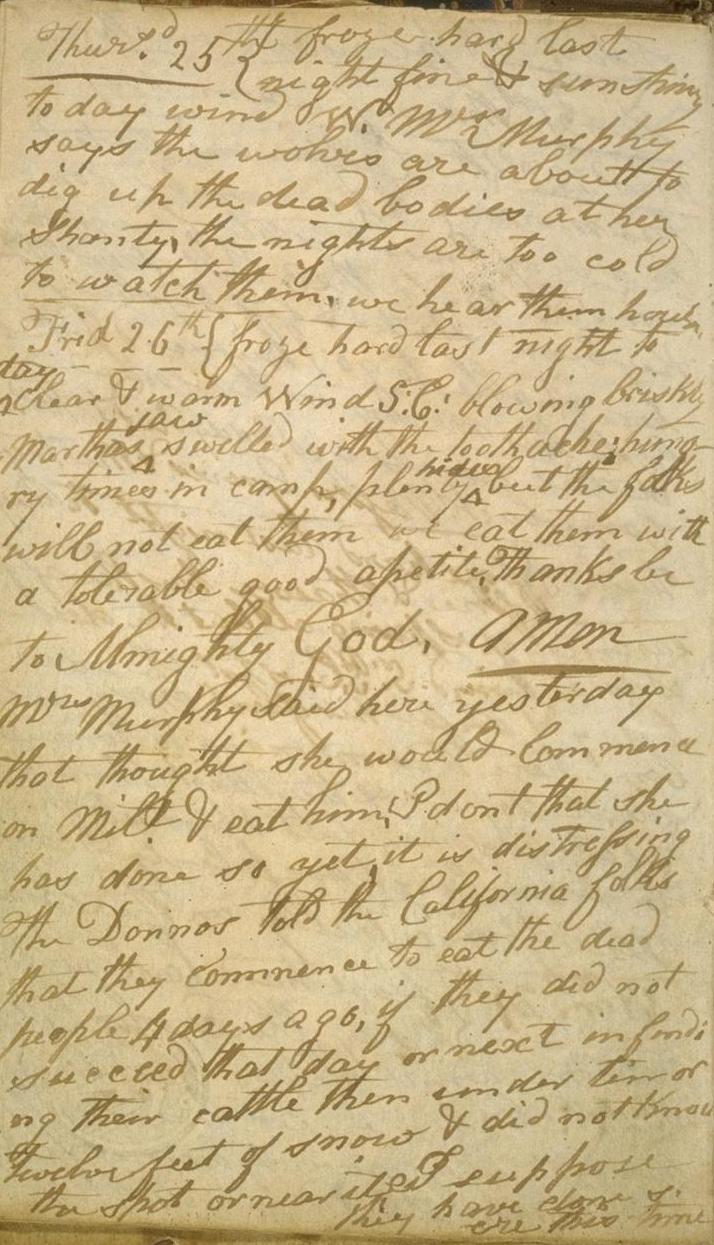 Thursd. 25th { froze hard last
night fine & sunshiny
today wind W. Mrs Murphy
says the wolves are about to
dig up the dead bodies at her
Shanty, the nights are too cold
to watch them, we hear them howl
Frid 26th { froze hard last night to
day
clear & warm Wind S.E. blowing briskly
Marthas jaw swelled with the toothache; hung-
ry times in camp, plenty hides but the folks
will not eat them we eat them with
a tolerable good apetite, Thanks be
to Almighty God. Amen
Mrs Murphy said here yesterday
that thought she would Commence
on Milt & eat him, I dont that she
has done so yet, it is distressing
The Donnos told the California folks
that they commence to eat the dead
people 4 days ago, if they did not
succeed that day or next in findi
ng their cattle then under ten or
twelve feet of snow & did not know
the spot or near it, I suppose
they have done so
ere this time